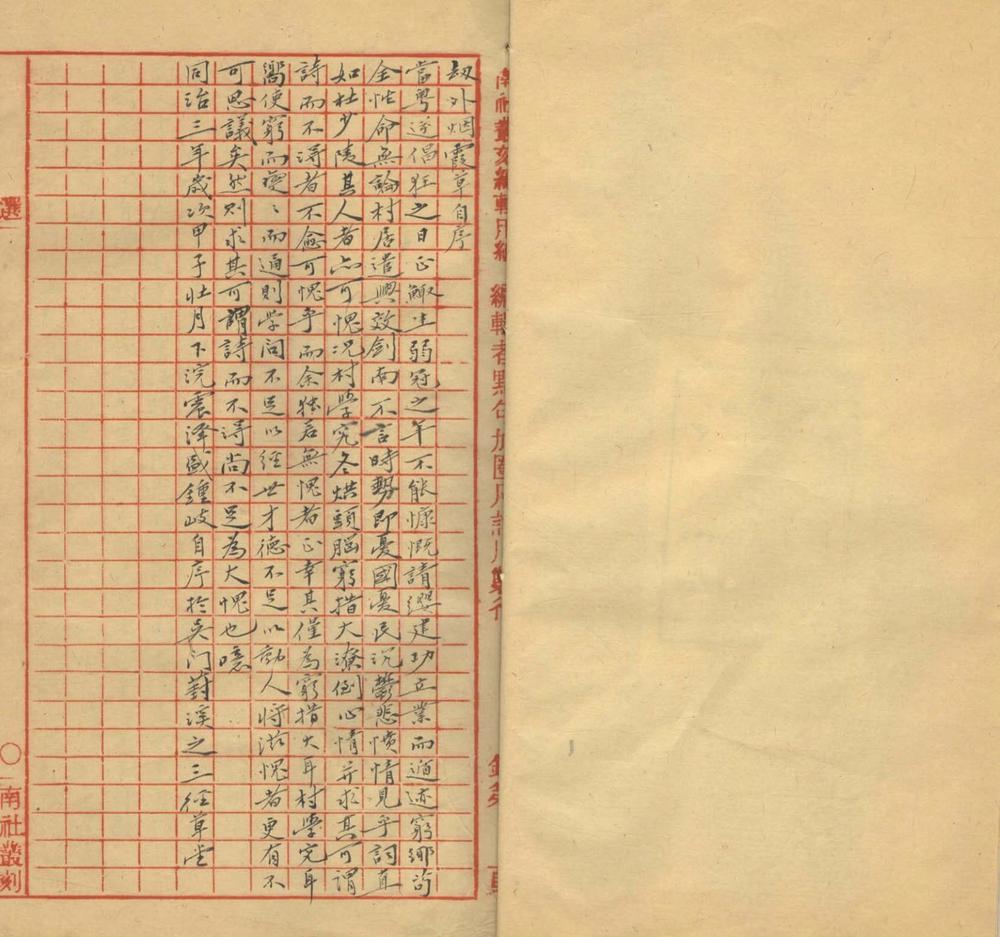 劫外烟霞草自序
當粤逆倡狂之日正鯫生弱冠之年不能慷慨請纓建功立業而遁迹窮鄉苟
全性命無論村居遣興效劍南不言時勢即憂國憂民沉鬱悲憤情見乎詞直
如杜少陵其人者亦可愧況村學究冬烘頭腦窮措大潦倒心情并求其可謂
詩而不淂者不愈可愧乎而余猶若無愧者正幸其僅為窮措大耳村學究耳
嚮使窮而變〻而通則学问不足以經世才德不足以動人将滋愧者更有不
可思議矣然則求其可謂詩而不淂尚不足為大愧也噫
同治三年歲次甲子壯月下浣震澤盛鍾岐自序於吳门葑溪之三徑草堂
選
南社叢刻
南社叢刻編輯用紙
編輯者點句加圈